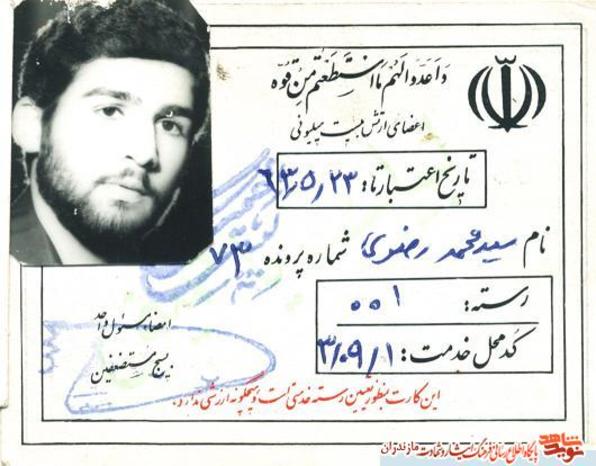 واعدوا لهم ما استطعتم من قوة
اعضای ارتش بیست میلیونی
تاریخ اعتبار تا: ۶۳,۵,۲۳
نام سید محمد رضوی شماره پرونده ۷۳
رسته: ۰۰۱
کد محل خدمت: ۳/۰۹/۱
امضاء مسئول واحد
بسیج مستضعفین
این کارت بمنظور تعیین رسته خدمتی است و هیچگونه ارزشی ندارد.
نوید شاهد
پایگاه اطلاع رسانی فرهنگ ایثار و شهادت مازندران